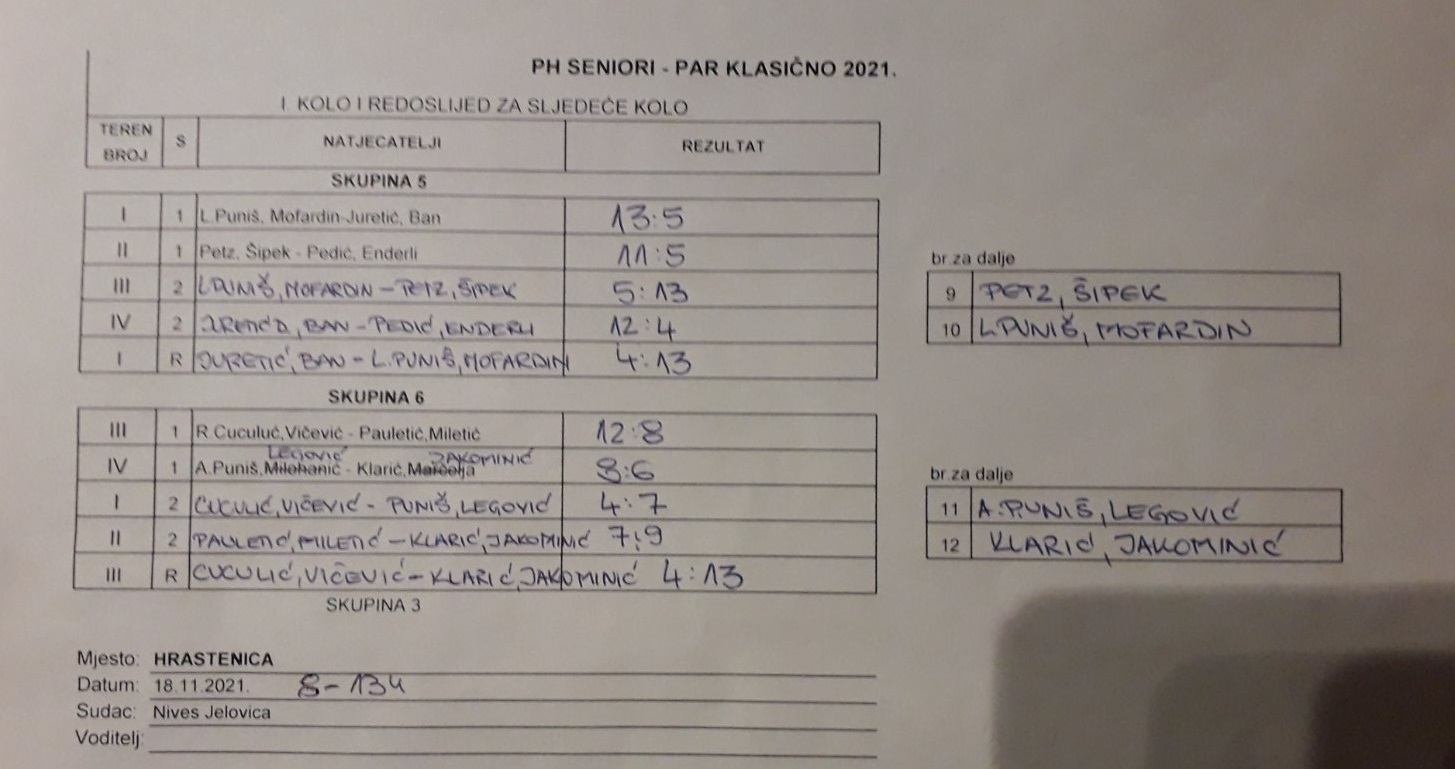 PH SENIORI - PAR KLASIČNO 2021.
I KOLO I REDOSLIJED ZA SLJEDEĆE KOLO
TEREN BROJ S NATJECATELJI REZULTAT
SKUPINA 5
I 1 L.Puniš, Mofardin-Juretić, Ban 13:5
II 1 Petz, Šipek - Pedić, Enderli 11:5
III 2 L.PUNIŠ, MOFARDIN - PETZ, ŠIPEK 5:13
IV 2 BAN - PEDIĆ, ENDERLI 12:4
I R JURETIĆ, BAN - L.PUNIŠ, MOFARDIN 4:13
br.za dalje
9 PETZ, ŠIPEK
10 L.PUNIŠ, MOFARDIN
SKUPINA 6
III 1 R.Cuculuć,Vičević - Pauletić,Miletić 12:8
LEGOVIĆ JAKOMINIĆ
IV 1 A.Puniš,Milohanić - Klarić, 8:6
I 2 CUCULIĆ, VIČEVIĆ - PUNIŠ, LEGOVIĆ 4:7
II 2 PAULETIĆ, MILETIĆ - KLARIĆ, JAKOMINIĆ 7:9
III R CUCULIĆ, VIČEVIĆ - KLARIĆ, JAKOMINIĆ 4:13
br.za dalje
11 A.PUNIŠ, LEGOVIĆ
12 KLARIĆ, JAKOMINIĆ
SKUPINA 3
Mjesto: HRASTENICA
Datum: 18.11.2021. 8-134
Sudac: Nives Jelovica
Voditelj: